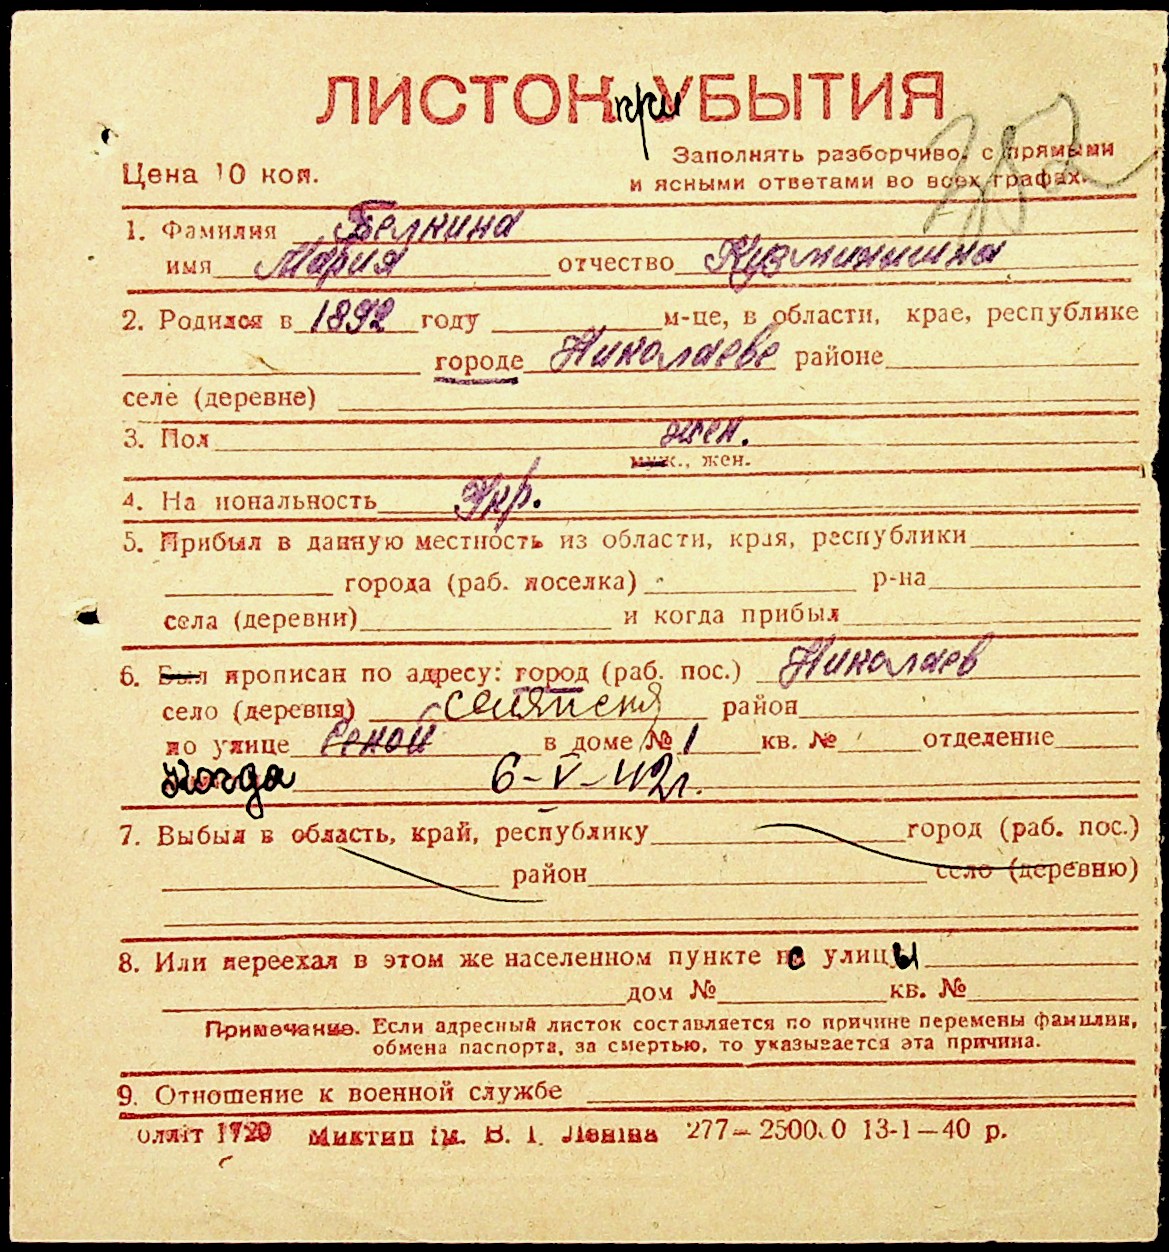 ЛИСТОК при УБЫТИЯ
Цена 10 коп.
Заполнять разборчиво, с прямыми
и ясными ответами во всех графах.
1. Фамилия Белкина
имя Мария отчество Кузминишна
2. Родился в 1892 году м-це, в области, крае, республике
городе Николаеве районе
селе (деревне)
3. Пол жен.
муж., жен.
4. Национальность Укр.
5. Прибыл в данную местность из области, края, республики
города (раб. поселка) р-на
села (деревни) и когда прибыл
6. Был прописан по адресу: город (раб. пос.) Николаев
село (деревня) район
по улице в доме № 1 кв. № отделение
Когда 6-V-42г.
7. Выбыл в область, край, республику город (раб. пос.)
район село (деревню)
8. Или переехал в этом же населенном пункте с улицы
дом № кв. №
Примечание. Если адресный листок составляется по причине перемены фамилии,
обмена паспорта, за смертью, то указывается эта причина.
9. Отношение к военной службе
им. В. І. Леніна 277—2500.0 13-1—40 р.